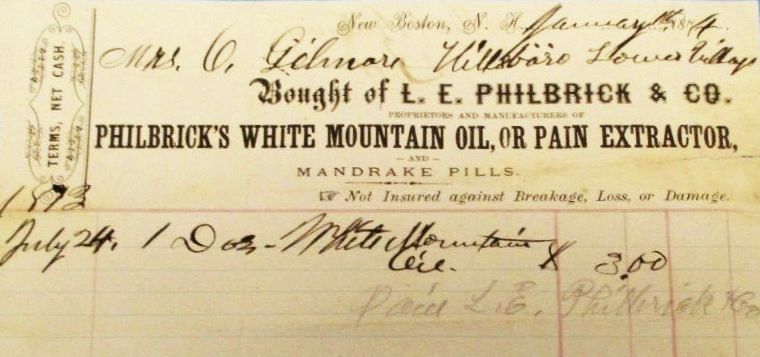 New Boston, N. H. January 1st 1874
Mrs. O. Gilmore Hillsboro Lower Village
TERMS, NET CASH.
Bought of L. E. PHILBRICK & CO.
PROPRIETORS AND MANUFACTURERS OF
PHILBRICK'S WHITE MOUNTAIN OIL, OR PAIN EXTRACTOR,
— AND —
MANDRAKE PILLS.
☞ Not Insured against Breakage, Loss, or Damage.
1873
July 24. 1 Doz - White Mountain
Oil. $ 3.00
Paid L. E. Philbrick & Co